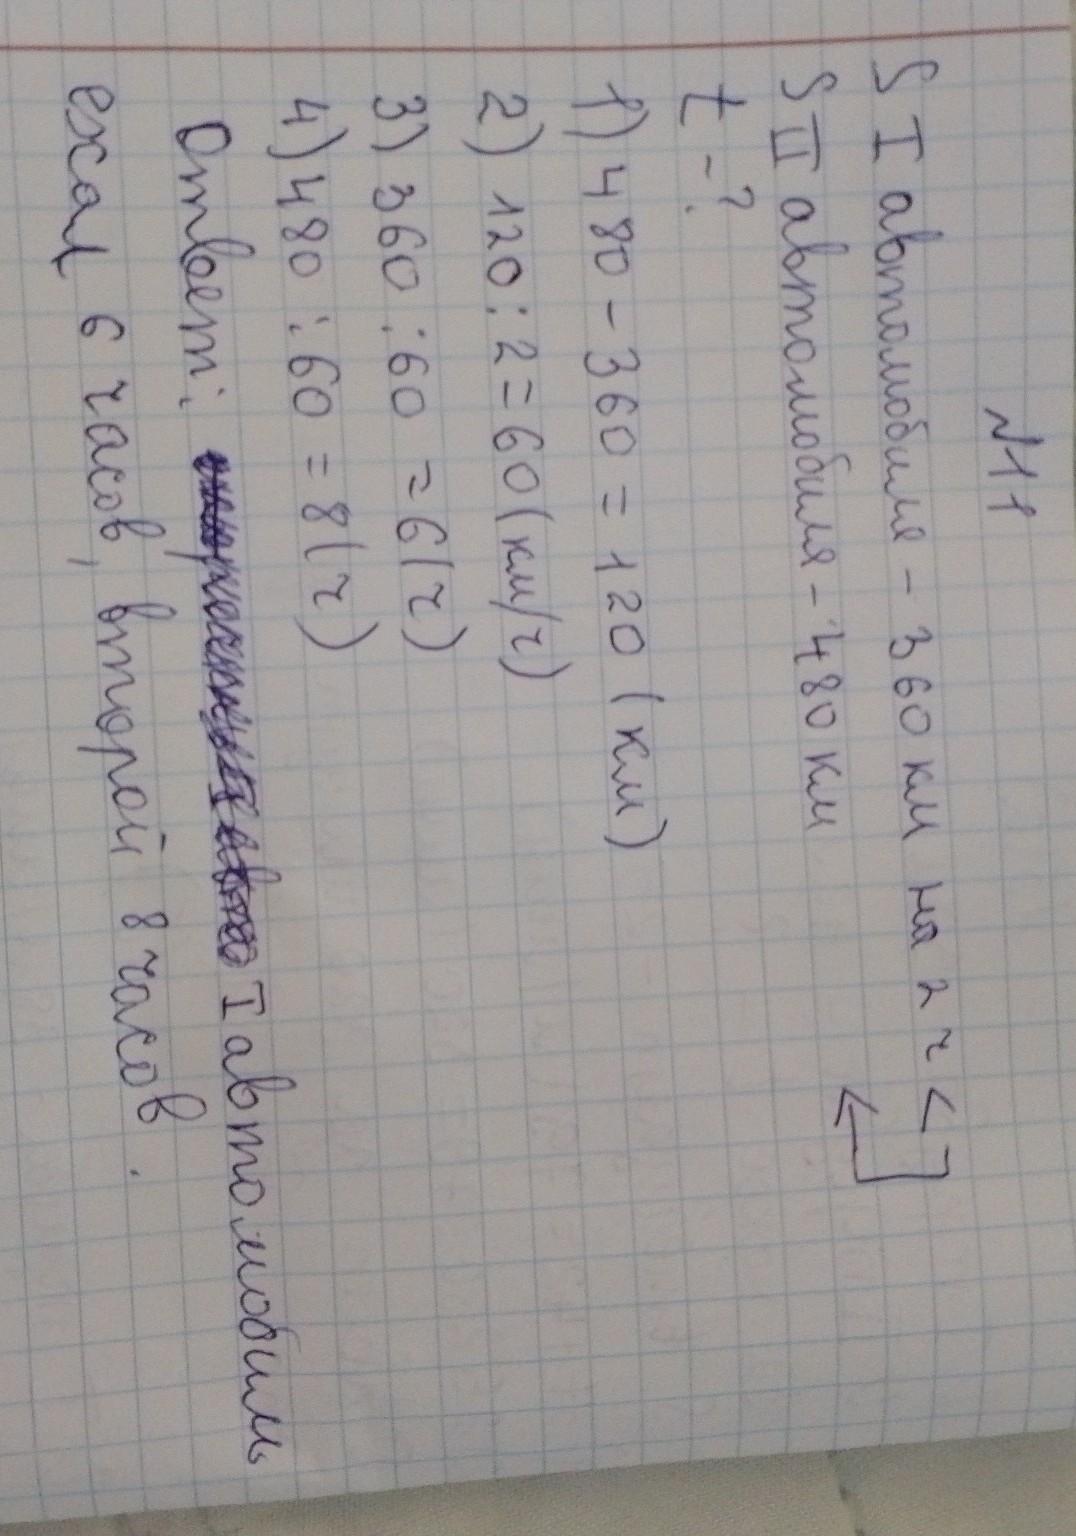 №11
S I автомобиля - 360 км на 2 ч <
S II автомобиля - 480 км
t - ?
1) 480 - 360 = 120 (км)
2) 120 : 2 = 60 (км/ч)
3) 360 : 60 = 6 (ч)
4) 480 : 60 = 8 (ч)
Ответ: I автомобиль
ехал 6 часов, второй 8 часов.